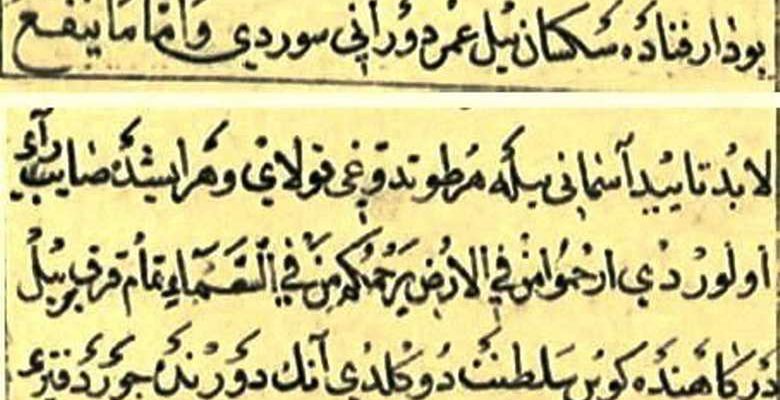 بو دار فناده سكسان ييل عمر دوراني سوردي واما ما ينفع
لا بد تاييد آسماني بيله مرطوتدوغى قولاي وهر ايشده صايب راء
اولوردي ارحموا من في الارض يرحمكم من في السماء تمام قرق ييل
دركاهنده كوس سلطنت دوكلدي آنك دورنده جور دفتر